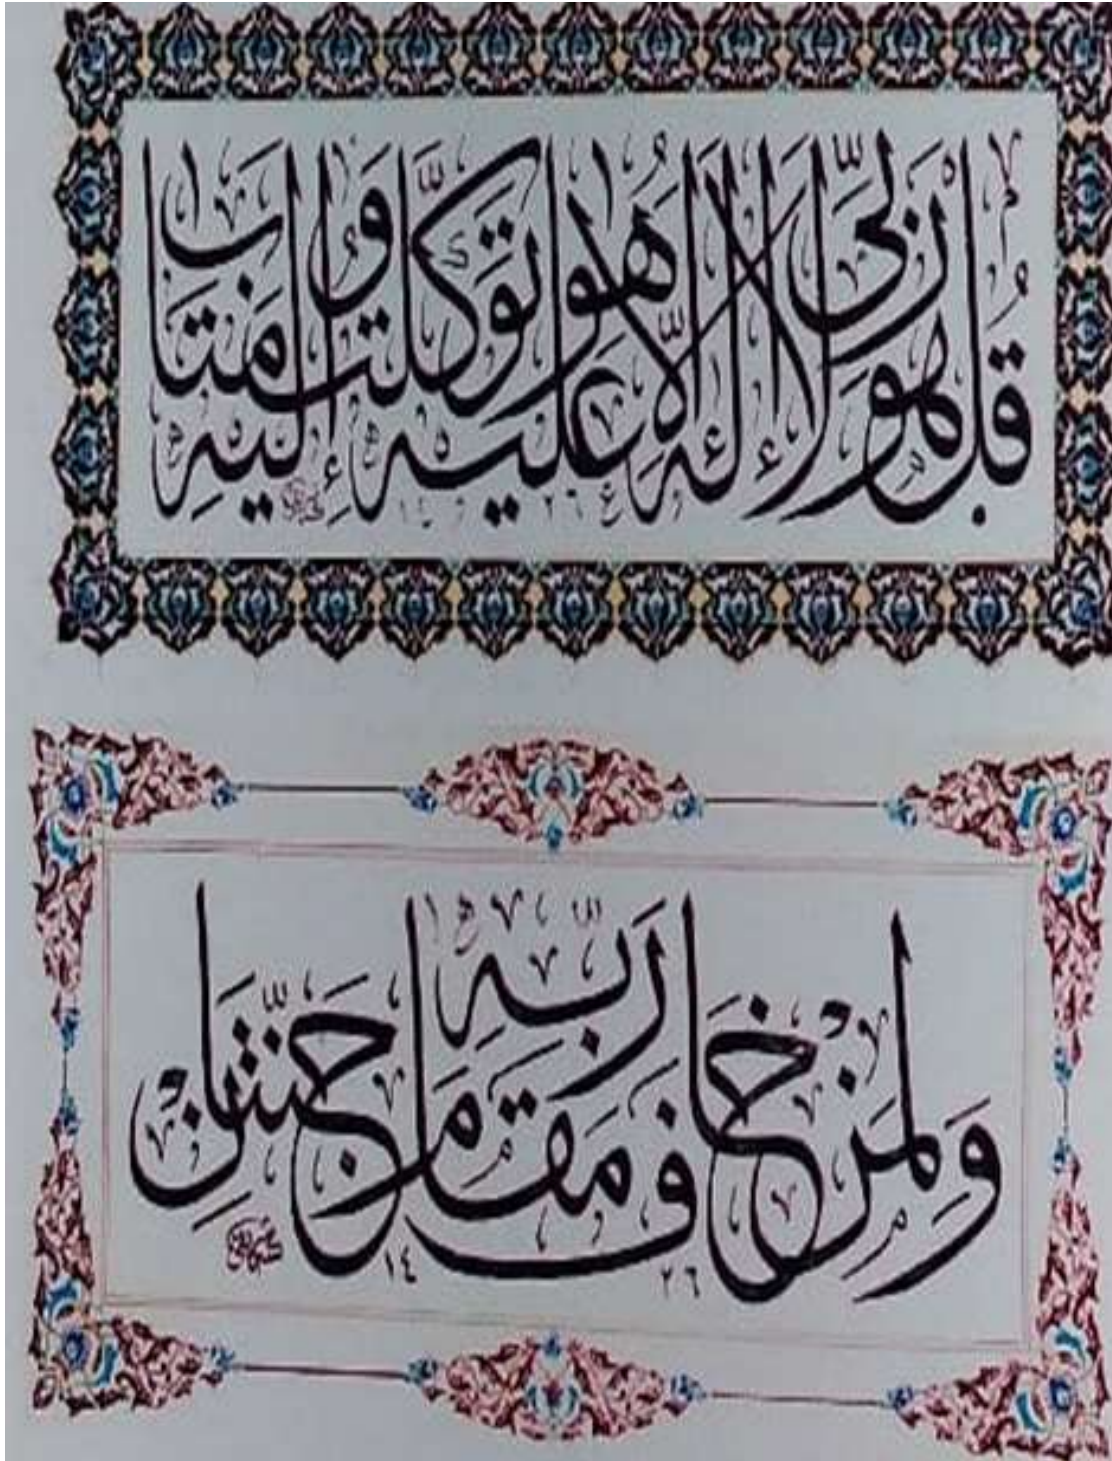 قُلْ هُوَ رَبِّي لَا إِلَٰهَ إِلَّا هُوَ عَلَيْهِ تَوَكَّلْتُ وَإِلَيْهِ مَتَابِ
١٤ ٢٦
وَلِمَنْ خَافَ مَقَامَ رَبِّهِ جَنَّتَانِ
١٤ ٢٦